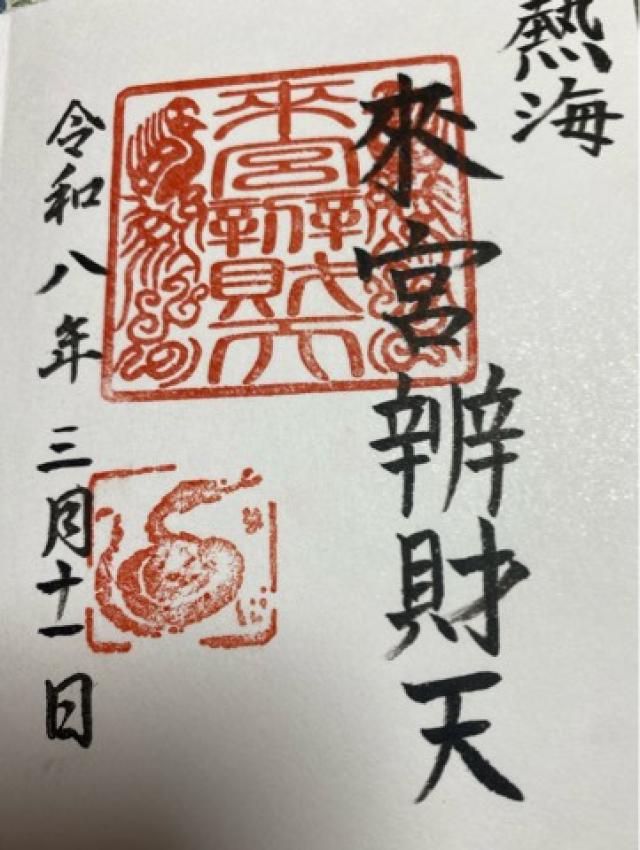 熱海
來宮辨財天
來宮辨財天
令和八年三月十一日